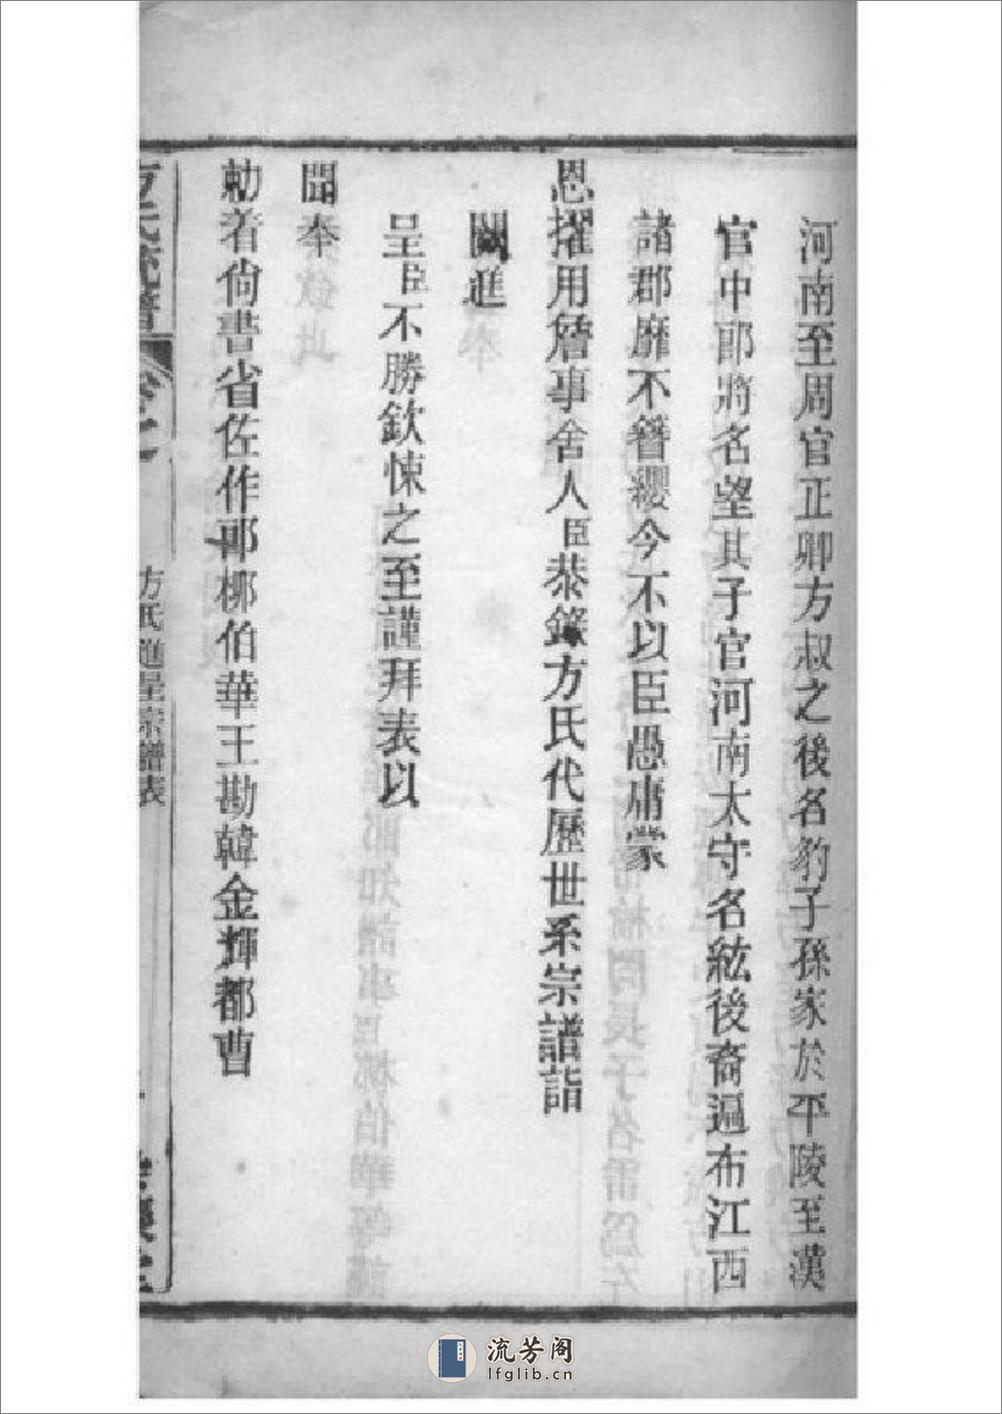 河南至周官正卿方叔之後名豹子孫家於平陵至漢
官中郎將名望其子官河南太守名紘後裔遍布江西
諸郡靡不簪纓今不以臣愚庸蒙
恩擢用詹事舍人臣恭錄方氏代歷世系宗譜詣
闕進
呈臣不勝欽悚之至謹拜表以
聞奉
勅着尚書省佐作郎柳伯華王勘韓金輝都曹
方氏統譜
卷之一
方氏進呈宗譜表
流芳阁
lfglib.cn